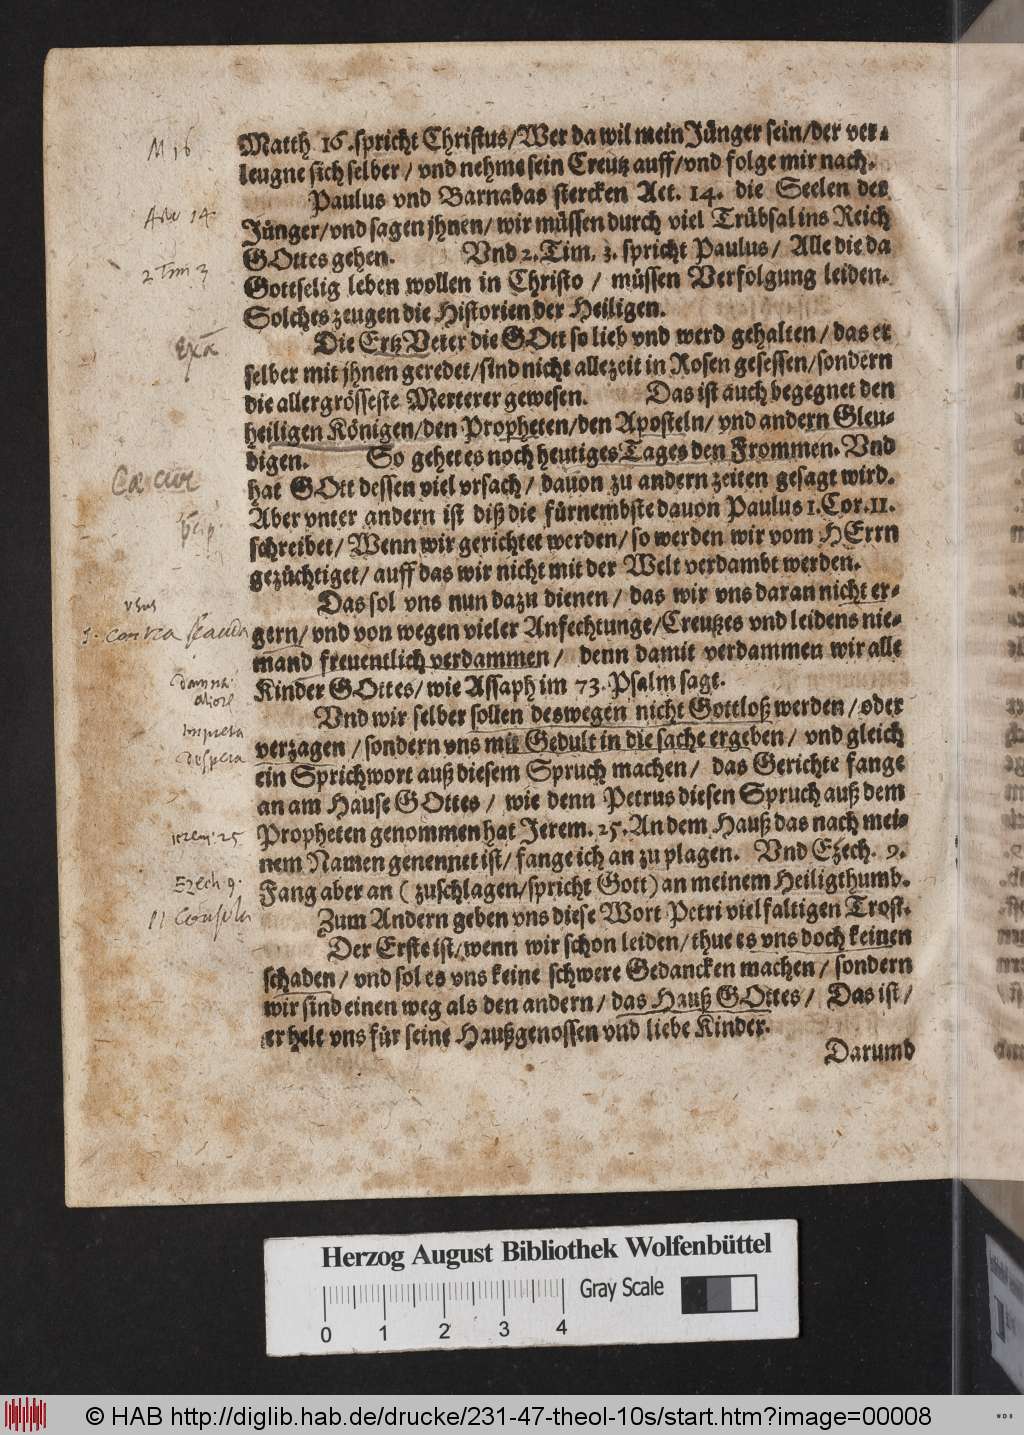 Matth 16. spricht Christus/Wer da wil mein Jünger sein/der ver-
leugne sich selber / vnd nehme sein Creutz auff/vnd folge mir nach.
Paulus vnd Barnabas stercken Act. 14. die Seelen der
Jünger/vnd sagen jhnen/ wir müssen durch viel Trübsal ins Reich
GOttes gehen. Vnd 2. Tim. 3. spricht Paulus/ Alle die da
Gottselig leben wollen in Christo / müssen Verfolgung leiden.
Solches zeugen die Historien der Heiligen.
Die ErtzVeter die GOtt so lieb vnd werd gehalten/ das er
selber mit jhnen geredet/sind nicht allezeit in Rosen gesessen/sondern
die allergrösseste Merterer gewesen. Das ist auch begegnet den
heiligen Königen/den Propheten/den Aposteln/ vnd andern Gleu-
bigen. So gehet es noch heutiges Tages den Frommen. Vnd
hat GOtt dessen viel vrsach/ dauon zu andern zeiten gesagt wird.
Aber vnter andern ist diß die fürnembste dauon Paulus 1. Cor. 11.
schreibet/ Wenn wir gerichtet werden/ so werden wir vom HErrn
gezüchtiget/ auff das wir nicht mit der Welt verdambt werden.
Das sol vns nun dazu dienen/ das wir vns daran nicht er-
gern/ vnd von wegen vieler Anfechtunge/Creutzes vnd leidens nie-
mand freuentlich verdammen/ denn damit verdammen wir alle
Kinder GOttes/ wie Assaph im 73. Psalm sagt.
Vnd wir selber sollen deswegen nicht Gottloß werden/ oder
verzagen / sondern vns mit Gedult in die sache ergeben/ vnd gleich
ein Sprichwort auß diesem Spruch machen/ das Gerichte fange
an am Hause GOttes / wie denn Petrus diesen Spruch auß dem
Propheten genommen hat Jerem. 25. An dem Hauß das nach mei-
nem Namen genennet ist/ fange ich an zu plagen. Vnd Ezech. 9.
Fang aber an ( zuschlagen/spricht Gott) an meinem Heiligthumb.
Zum Andern geben vns diese Wort Petri vielfaltigen Trost.
Der Erste ist/wenn wir schon leiden/ thue es vns doch keinen
schaden/ vnd sol es vns keine schwere Gedancken machen/ sondern
wir sind einen weg als den andern/ das Hauß GOttes/ Das ist/
er helt vns für seine Haußgenossen vnd liebe Kinder.
Darumb
M 16
14.
2 Tim 3
Exa
Ca cur
vsus
1. contra scanda
Damna
desper
Jerem. 25
Ezech 9.
II Consola
Herzog August Bibliothek Wolfenbüttel
Gray Scale
0 1 2 3 4
© HAB http://diglib.hab.de/drucke/231-47-theol-10s/start.htm?image=00008